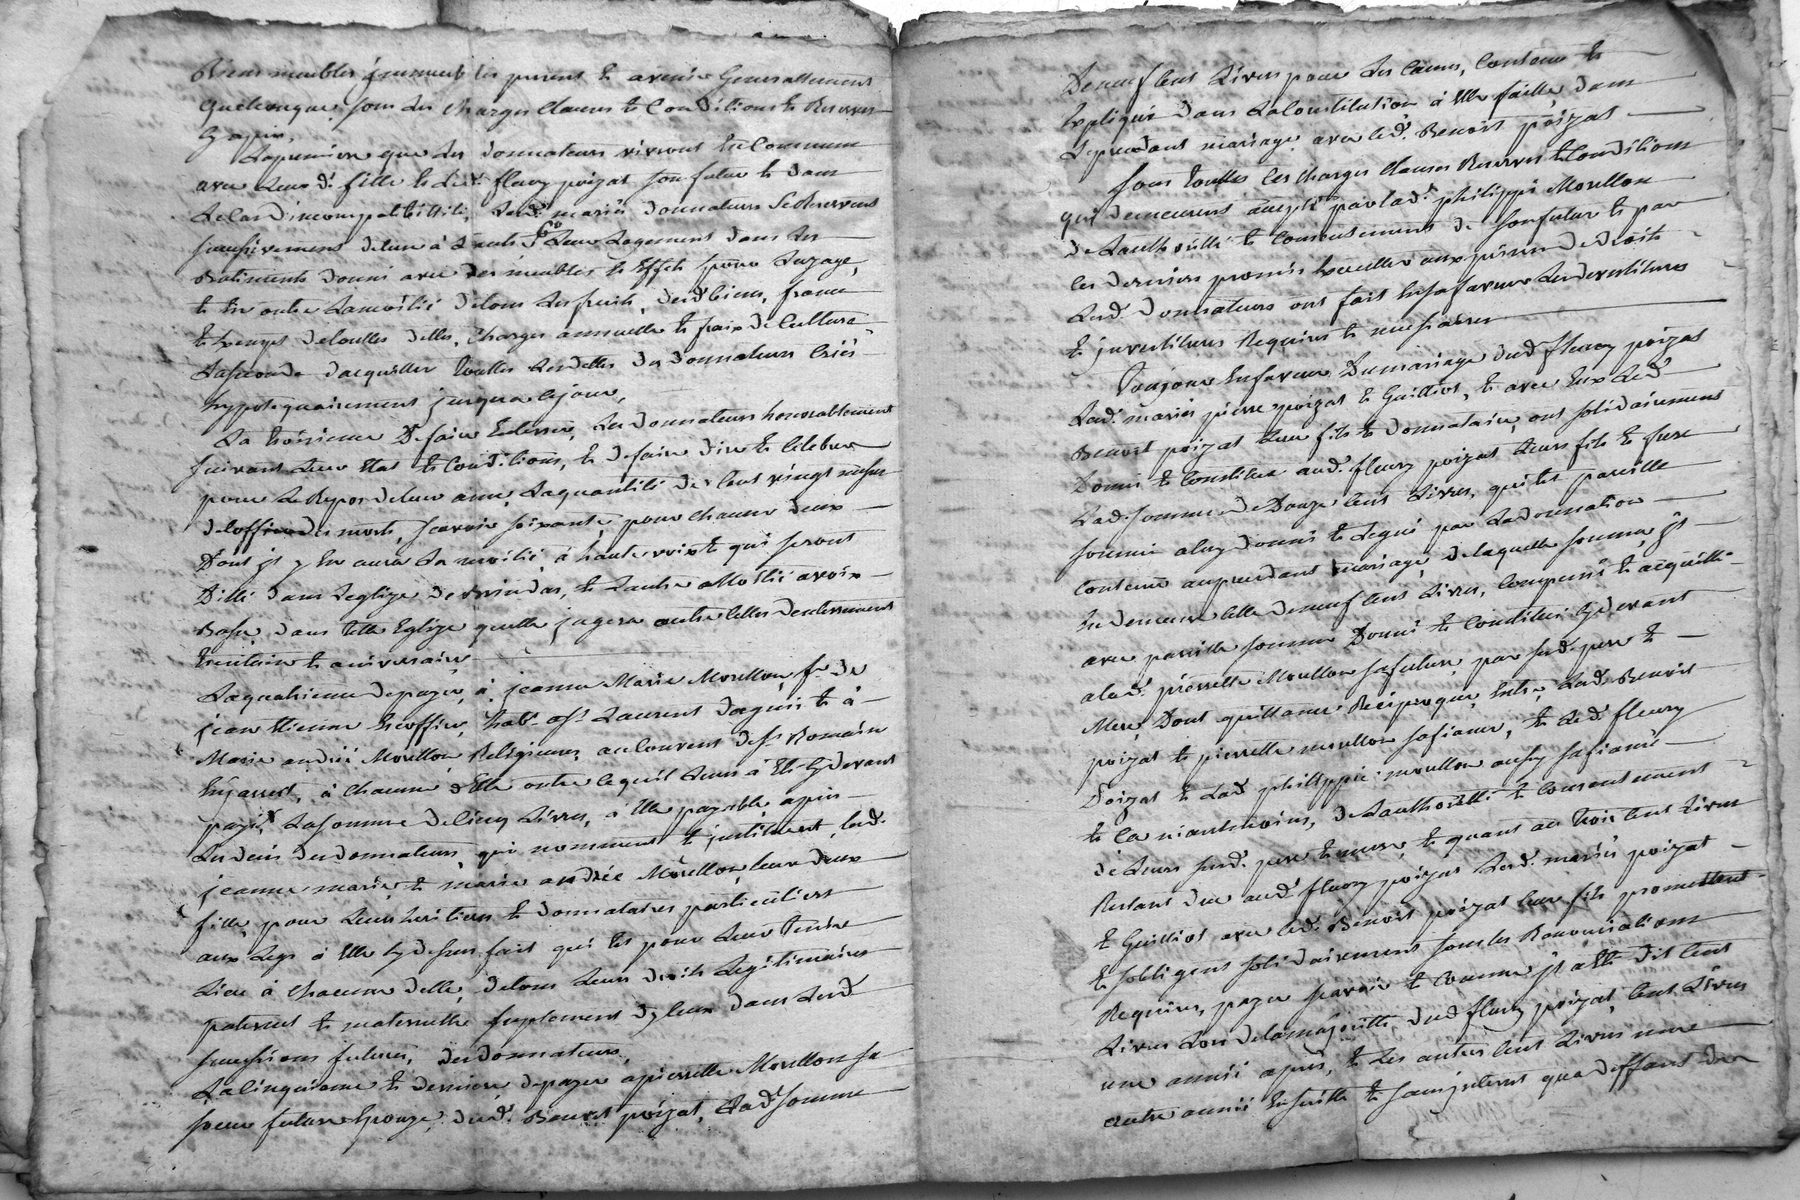 Biens meubles jmmeubles presents et avenir Generallement
Quelconque, sous les charges clauses et Conditions et Reserves
Cy apres,
La premiere que les donnateurs vivront En Commun
avec leur d. fille et led. fleury poizat son futur et dans
Le Cas d'incompatibillité, Lesd. mariés donnateurs Se Reservent
sucessivement de lun à Lautre Leur Logement dans les
Batiments donnés avec des meubles et Effets pour Luzage,
et En outre La moitié de tous Les fruits, desd. biens, france
et Exempt de touttes dittes, Charges annuelle et frais de Culture
La seconde dacquitter touttes Les dettes des donnateurs Créés
hypotequairement jusqu'a ce jour,
La troisieme De faire Enterrer, Les donnateurs honnorablement
suivant Leur Etat et Conditions, et de faire dire et Celebrer
pour Le Repos de leur ame, La quantité de Cent vingt messes
de loffice des morts, scavoir soixante, pour chacun deux
Dont jl y En aura La moitié, à haute voix et qui seront
Dittes dans Leglize de , et Lautre Moitié a voix
Basse, dans telle Eglize quelle jugera outre Celles denterrement
trentaine et aniversaire
La quatrieme de payer, à jeanne Marie Morellon f.e de
jean Etienne , hab.t a S.t Laurent et à
Marie andrée Morellon Religieuse, au Couvent de S.t Romain
En jarrest, à chacune d'Elle outre ce quil Leurs à Eté Cy devant
payé, La somme de Cinq Livres, à Elle payable apres
Les deces des donnateurs, qui nomment et jnstituent, lesd.
jeanne marie et marie andrée Morellon, leur deux
fille, pour Leurs heritiers et donnataires particuliers
aux Legs à Elle Cy dessus fait qui Est pour Leur tenir
Lieu à chacune delle, de tous Leurs droits Legitimaires
paternel et maternelle suplement dyceux dans Lesd.
sucessions futures, des donnateurs,
La Cinquieme et derniere de payer a pierrette Morellon sa
soeur future Epouze, dud. Benoit poizat, Lad. somme
De neuf Cent Livres pour Les Causes, Contenu et
Expliqué dans La Constitution à Elle faitte, dans
Le precedant mariage avec led. Benoit poizat
Sous touttes les charges Clauses Reserves et Conditions
qui demeurent accepté par lad. philippe Morellon
de Lauthorité et Consentement de son futur et par
les derniers promis aux peines de droits
Lesd. donnateurs ont fait En sa faveur Les devestitures
Et jnvestitures Requises et necessaires
Toujours En faveur Du mariage dud. fleury poizat
Lesd. mariés pierre poizat et Guilliot, et avec Eux Led.
Benoit poizat Leur fils et donnataire, ont solidairement
Donné et Constitué aud. fleury poizat Leurs fils et frere
Lad. somme de Douze Cent Livres, qui Est pareille
somme a luy donné et Legué par La donnation
Contenue au precedant mariage, de laquelle somme jl
En demeure Celle de neuf Cent Livres, Compensé et acquitté
avec pareille somme Donné et Constitué Cy devant
a lad. pierrette Morellon sa future, par sesd. pere et
Mere, Dont quittance Reciproque, Entre, Led. Benoit
poizat et pierrette morellon sa fiancée, et Led. fleury
Poizat et Lad. philippe morellon aussy sa fiancée
et Ce neantmoins, de Lauthorité et Consentement
de Leurs sesd. pere et mere, et quant au trois Cent Livres
Restant due aud. fleury poizat Lesd. mariés poizat
et Guilliot avec led. Benoit poizat leur fils promettent
Et sobligent solidairement sous les Renonciations
Requises, payer scavoir et Comme jl a Eté dit Cent
Livres Lors de la majorité, dud. fleury poizat, Cent Livres
une année apres, et Les autres Cent Livres une
autre année Ensuitte et sans jnterest qua deffaut de